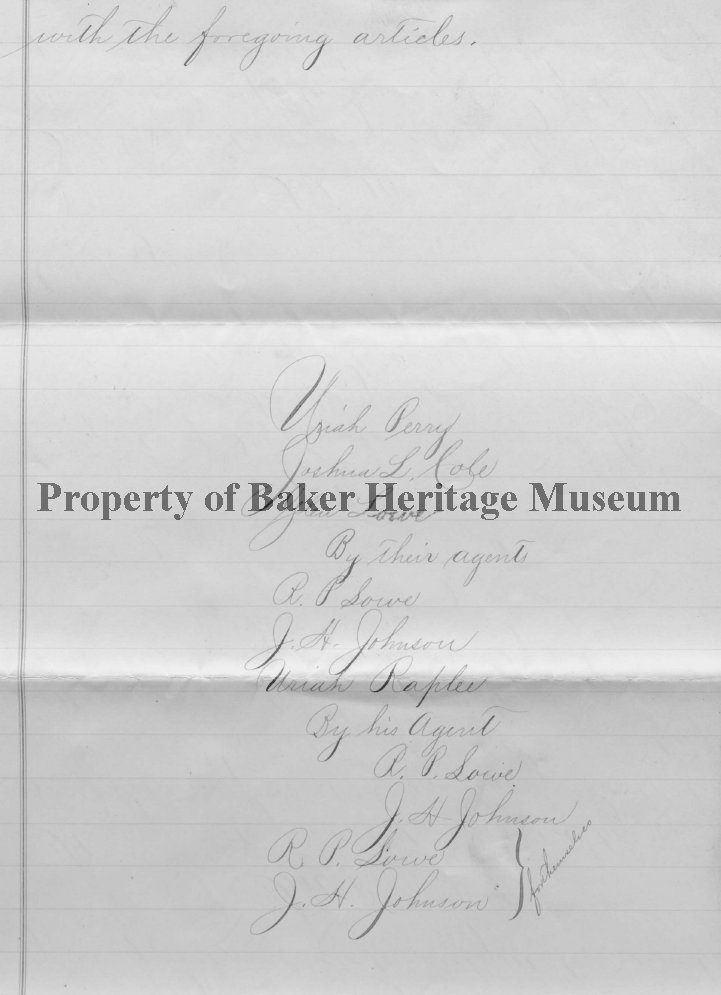 with the foregoing articles.
Uriah Perry
Joshua L. Cole
Property of Baker Heritage Museum
Lowe
By their agents
R. P Lowe
J. H. Johnson
Uriah Raplee
By his Agent
R. P. Lowe
J. H Johnson
R P. Lowe
for themselves
J. H. Johnson